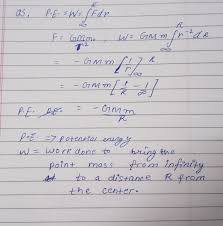 as, P.E = W = ∫∞^R F dr
F = GMm/r², W = GMm ∫∞^R r⁻² dr
= -GMm [1/r]∞^R
= -GMm [1/R - 1/∞]
P.E. = -GMm/R
P.E => Potential energy
W = work done to bring the
point mass from infinity
to a distance R from
the center.